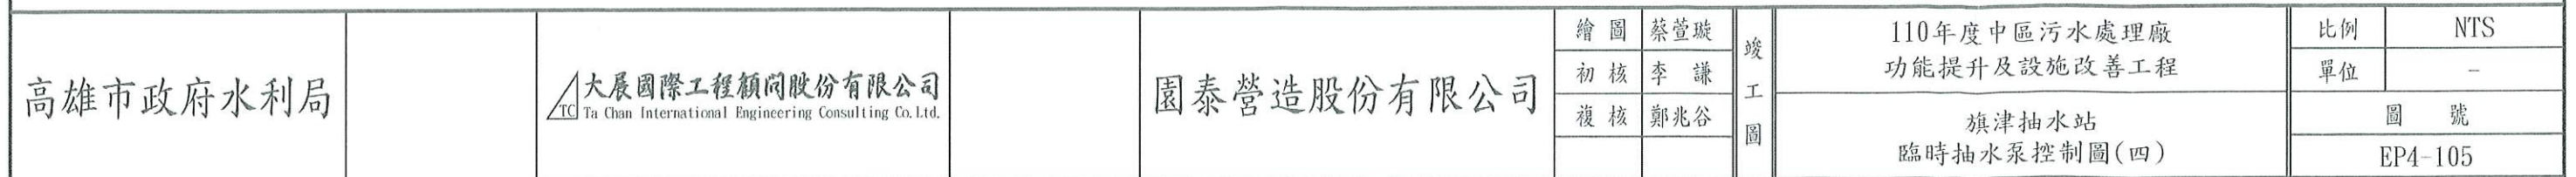 高雄市政府水利局
TC
大展國際工程顧問股份有限公司
Ta Chan International Engineering Consulting Co. Ltd.
園泰營造股份有限公司
繪圖 蔡萱璇
初核 李謙
複核 鄭兆谷
竣工圖
110年度中區污水處理廠
功能提升及設施改善工程
旗津抽水站
臨時抽水泵控制圖(四)
比例 NTS
單位 -
圖號
EP4-105